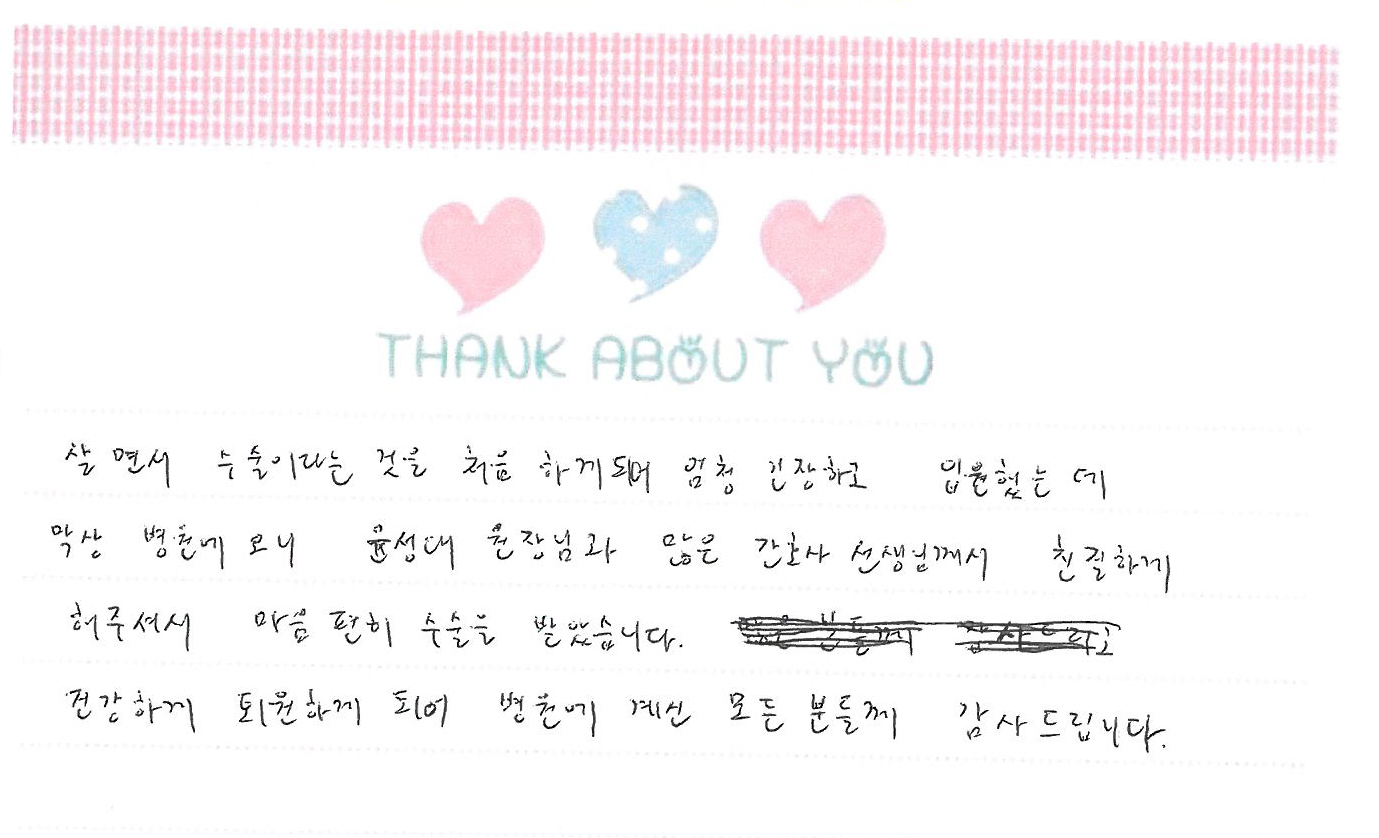 THANK ABOUT YOU
살면서 수술이라는 것을 처음 하게되어 엄청 긴장하고 입원했는데
막상 병원에 오니 윤성대 원장님과 많은 간호사 선생님께서 친절하게
해주셔서 마음 편히 수술을 받았습니다.
건강하게 퇴원하게 되어 병원에 계신 모든 분들께 감사드립니다.